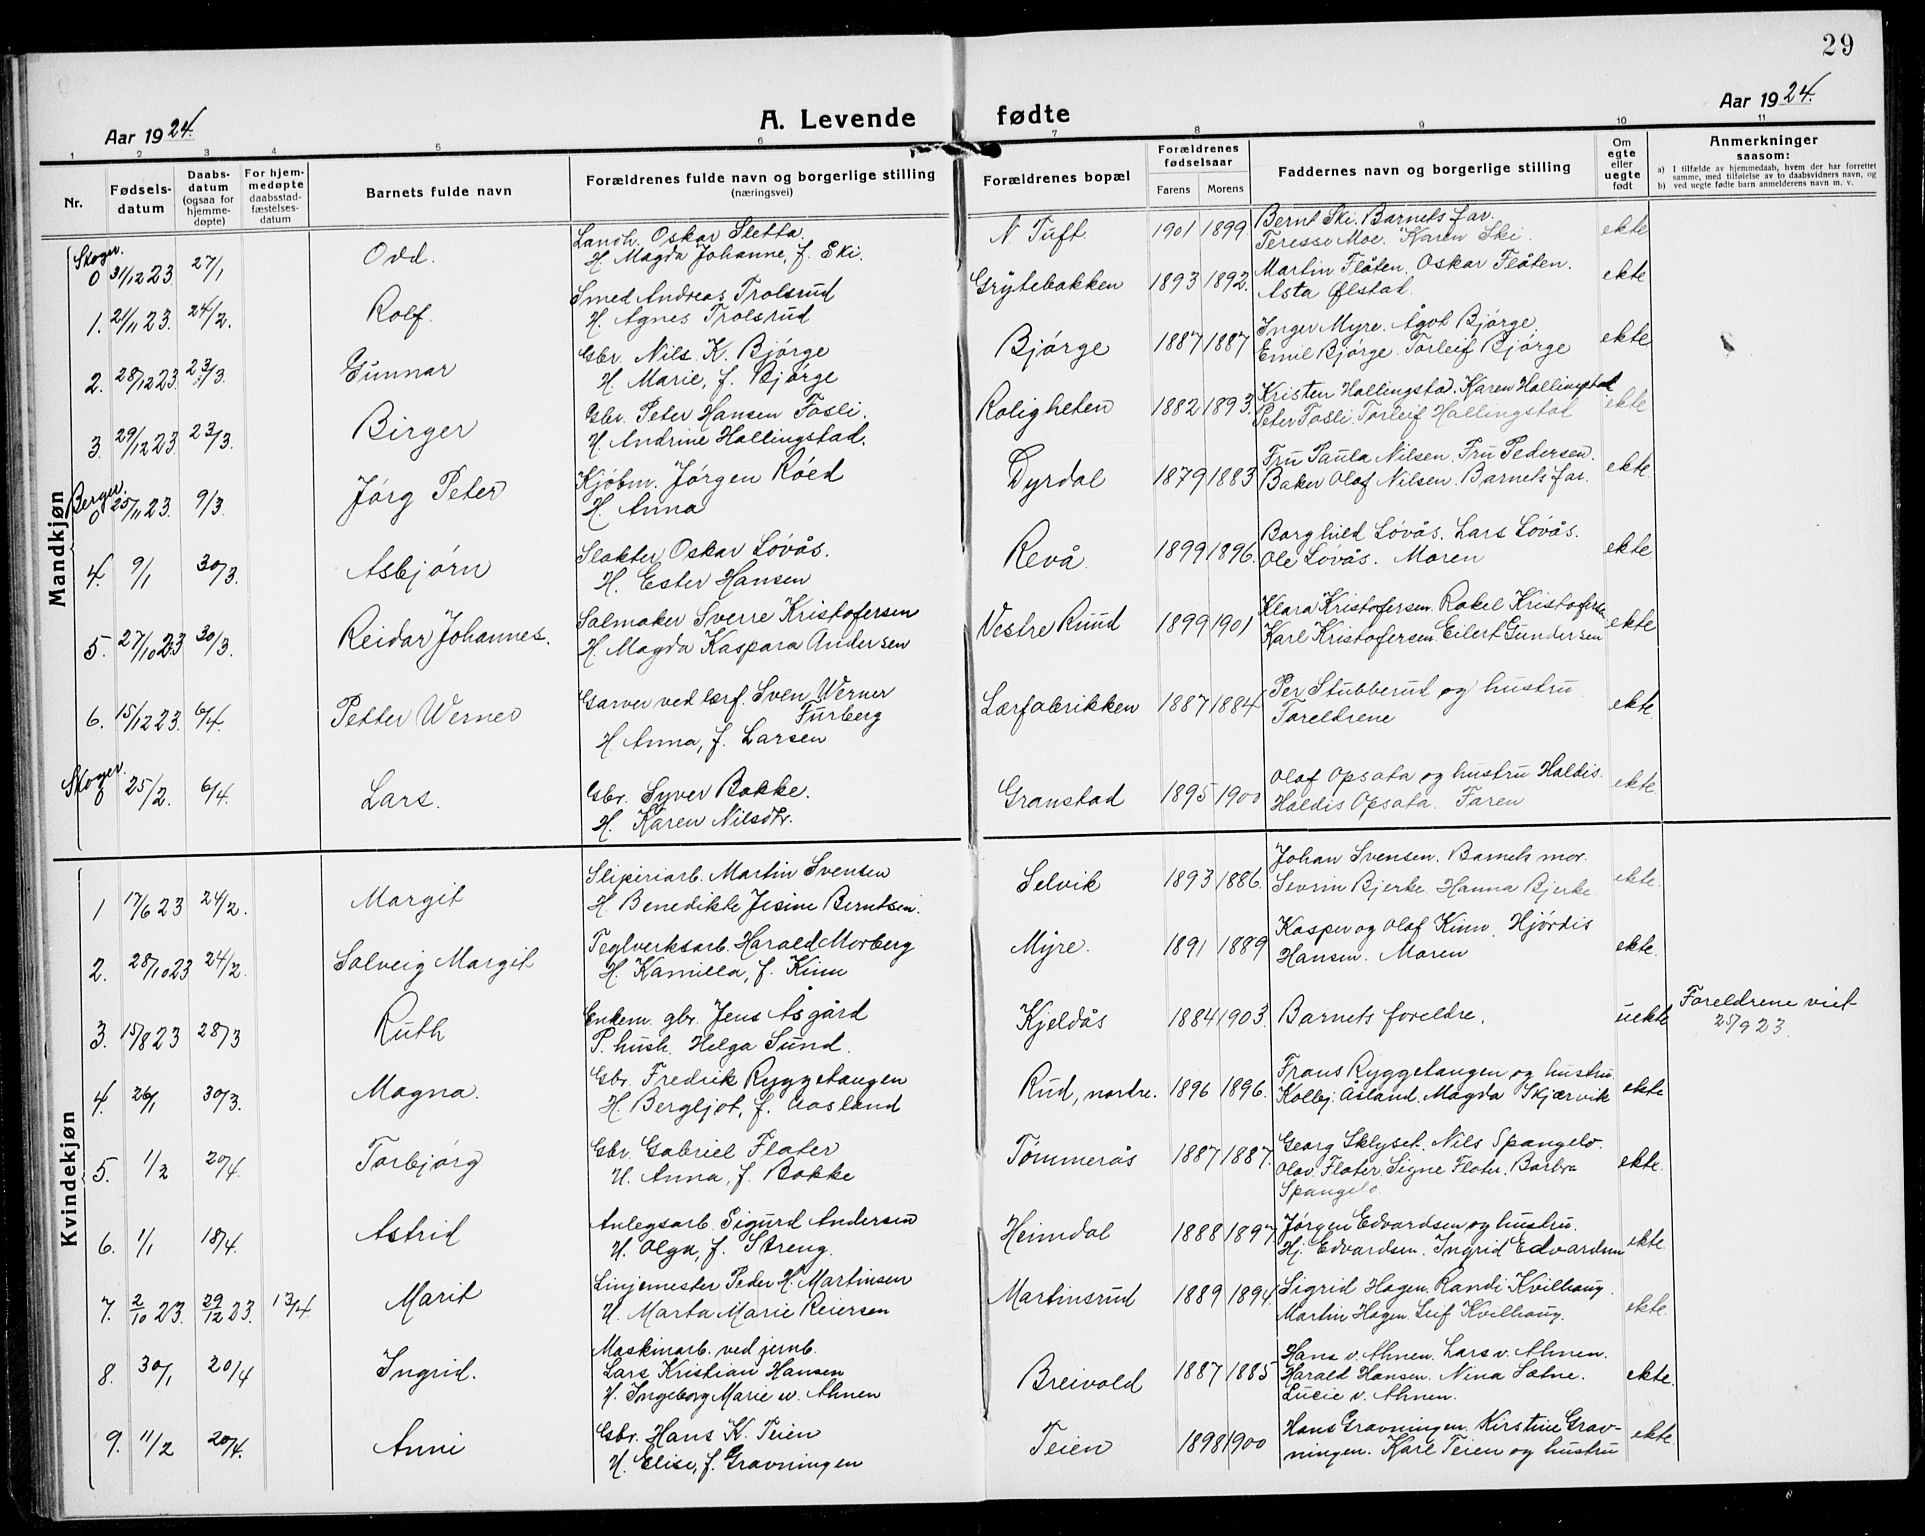 29
Aar 1924.
A. Levende fødte
Aar 1924.
1 2 3 4 5 6 7 8 9 10 11
Nr.
Fødsels-
datum
Daabs-
datum
(ogsaa for
hjemme-
døpte)
For hjem-
medøpte
daabsstad-
fæstelses-
datum
Barnets fulde navn
Forældrenes fulde navn og borgerlige stilling
(næringsvei)
Forældrenes bopæl
Forældrenes
fødselsaar
Farens Morens
Faddernes navn og borgerlige stilling
Om
egte
eller
uegte
født
Anmerkninger
saasom:
a) I tilfælde av hjemmedaab, hvem der har forrettet
samme, med tilføielse av to daabsvidners navn, og
b) ved uegte fødte barn anmelderens navn m. v.
Mandkjøn
Skoger.
0 31/12 23 27/1 Odd. Landh. Oskar Sletta N. Tuft. 1901 1899 Bernt Ski. Barnets far. ekte
H. Magda Johanne, f. Ski. Teresse Moe. Karen Ski.
1. 21/11 23. 24/2. Rolf. Smed Andreas Trolsrud Grytebakken 1893 1892. Martin Flåten. Oskar Flåten. ekte
H. Agnes Trolsrud Asta Ølstad.
2. 28/12 23 23/3. Gunnar Gbr. Nils K. Bjørge Bjørge 1887 1887 Inger Myre. Ågot Bjørge. ekte
H. Marie, f. Bjørge Emil Bjørge. Torleif Bjørge
3. 29/12 23 23/3. Birger Gbr. Peter Hansen Fosli. Roligheten 1882 1893. Kristen Hallingstad. Karen Hallingstad ekte
H. Andrine Hallingstad. Peter Fosli. Torleif Hallingstad
Berger.
0 25/11 23. 9/3. Jørg Peter Kjøbm. Jørgen Røed Dyrdal 1879 1883 Fru Paula Nilsen. Fru Pedersen. ekte
H. Anna Baker Olaf Nilsen. Barnets far.
4. 9/1 30/3. Asbjørn Slakter Oskar Løvås. Revå 1899 1896. Borghild Løvås. Lars Løvås. ekte
H. Ester Hansen Ole Løvås. Moren
5. 27/10 23 30/3. Reidar Johannes. Salmaker Sverre Kristofersen Vestre Ruud 1899 1901 Klara Kristofersen. Rakel Kristofersen ekte
H. Magda Kaspara Andersen Karl Kristofersen. Eilert Gundersen
6. 15/12 23. 6/4. Petter Werner Garver ved lærf. Sven Werner Lærfabrikken 1887 1884 Per Stubberud og hustru. ekte
Furberg Foreldrene
H. Anna, f. Larsen
Skoger.
0 25/2. 6/4. Lars. Gbr. Syver Bakke. Granstad 1895 1900 Olaf Opsata og hustru Haldis. ekte
H. Karen Nilsdtr. Haldis Opsata. Faren
Kvindekjøn
1 17/6 23 24/2. Margit Sliperiarb. Martin Svensen Selvik 1893 1886. Johan Svensen. Barnets mor. ekte.
H. Benedikte Jesine Berntsen. Sevrin Bjerke. Hanna Bjerke
2. 28/10 23 24/2. Solveig Margit Teglverksarb. Harald Morberg Myre. 1891 1889 Kasper og Olaf Kinn. Hjørdis ekte.
H. Kamilla, f. Kinn Hansen. Moren
3. 15/8 23 28/3 Ruth Enkem. gbr. Jens Åsgård Kjeldås 1884 1903. Barnets foreldre. uekte Foreldrene viet
P. hush. Helga Sund. 25/9 23.
4. 26/1 30/3. Magna. Gbr. Fredrik Ryggetangen Rud, nordre. 1896 1896. Frans Ryggetangen og hustru ekte
H. Bergljot, f. Aasland Kolbj. Åsland. Magda Skjærvik
5. 1/2 20/4. Torbjørg Gbr. Gabriel Flater Tømmerås 1887 1887. Georg Sklyset. Nils Spangelo. ekte.
H. Anna, f. Bakke Olav Flater. Signe Flater. Barbra
Spangelo
6. 1/1 18/4. Astrid Anlegsarb. Sigurd Andersen Heimdal 1888 1897 Jørgen Edvardsen og hustru. ekte.
H. Olga, f. Streng. Hj. Edvardsen. Ingrid Edvardsen
7. 2/10 23. 29/12 23. 13/4. Marit Linjemester Peder H. Martinsen Martinsrud 1889 1894. Sigrid Hagen. Randi Kvilhaug. ekte.
H. Marta Marie Reiersen Martin Hagen. Leif Kvilhaug.
8. 30/1 20/4 Ingrid. Maskinarb. ved jernb. Breivold 1887 1885 Hans v. Ahnen. Lars v. Ahnen. ekte.
Lars Kristian Hansen Harald Hansen. Nina Salne.
H. Ingeborg Marie v. Ahnen Lucie v. Ahnen.
9. 11/2 20/4. Anni Gbr. Hans K. Teien Teien 1898 1900 Hans Gravningen. Kirstine Grav- ekte.
H. Elise, f. Gravningen ningen. Karl Teien og hustru